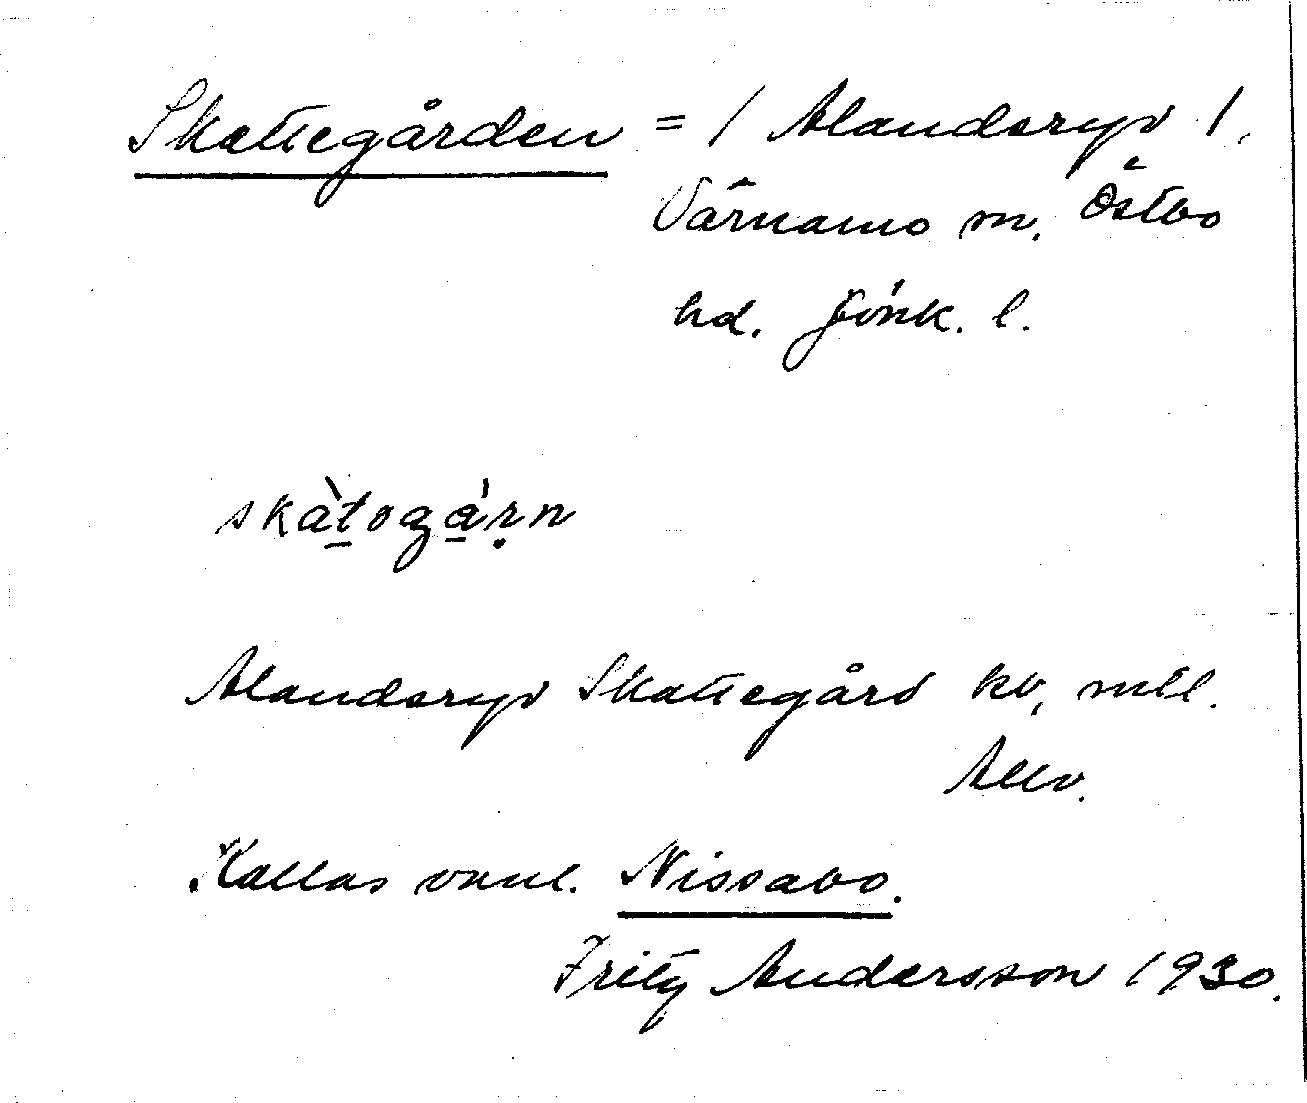 Skattegården = / Alandsryd /.
Värnamo sn. Östbo
hd. Jönk. l.
skàtogárn
Alandsryd Skattegård hv, mtl.
Kallas vanl. Nissabo.
Fritz Andersson 1930.